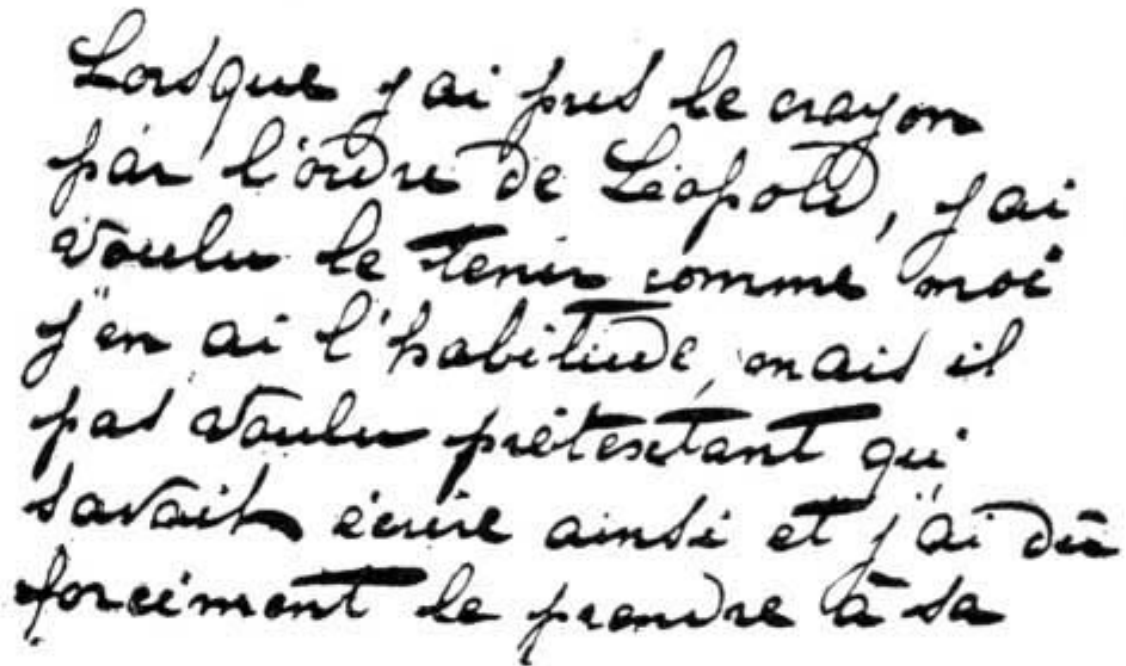 Lorsque j'ai pris le crayon
par l'ordre de Léopold, j'ai
voulu le tenir comme moi
j'en ai l'habitude, mais il
pas voulu prétextant qui
savait écrire ainsi et j'ai dû
forcément le prendre à sa